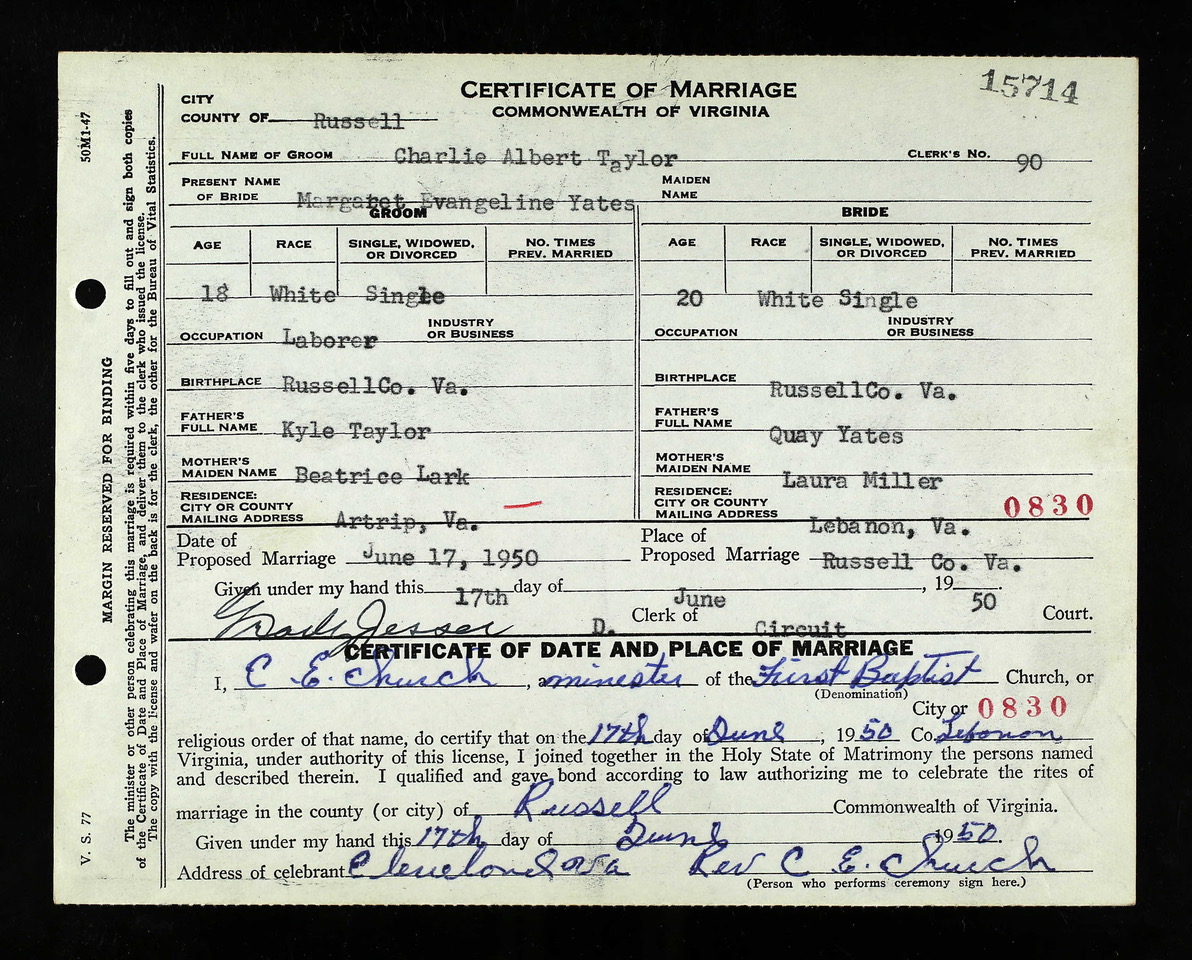 CERTIFICATE OF MARRIAGE
COMMONWEALTH OF VIRGINIA
15714
CITY
COUNTY OF Russell
FULL NAME OF GROOM Charlie Albert Taylor CLERK'S NO. 90
PRESENT NAME OF BRIDE Margaret Evangeline Yates MAIDEN NAME
GROOM BRIDE
AGE RACE SINGLE, WIDOWED, OR DIVORCED NO. TIMES PREV. MARRIED AGE RACE SINGLE, WIDOWED, OR DIVORCED NO. TIMES PREV. MARRIED
18 White Single 20 White Single
OCCUPATION Laborer INDUSTRY OR BUSINESS OCCUPATION INDUSTRY OR BUSINESS
BIRTHPLACE RussellCo. Va. BIRTHPLACE RussellCo. Va.
FATHER'S FULL NAME Kyle Taylor FATHER'S FULL NAME Quay Yates
MOTHER'S MAIDEN NAME Beatrice Lark MOTHER'S MAIDEN NAME Laura Miller
RESIDENCE: CITY OR COUNTY MAILING ADDRESS Artrip, Va. RESIDENCE: CITY OR COUNTY MAILING ADDRESS Lebanon, Va. 0830
Date of Proposed Marriage June 17, 1950 Place of Proposed Marriage Russell Co. Va.
Given under my hand this 17th day of June, 1950
D. Clerk of Circuit Court.
CERTIFICATE OF DATE AND PLACE OF MARRIAGE
I, C. E. Church, a minester of the First Baptist Church, or
(Denomination)
City or 0830
religious order of that name, do certify that on the 17th day of June, 1950 Co. Lebonon
Virginia, under authority of this license, I joined together in the Holy State of Matrimony the persons named
and described therein. I qualified and gave bond according to law authorizing me to celebrate the rites of
marriage in the county (or city) of Russell Commonwealth of Virginia.
Given under my hand this 17th day of June 1950.
Address of celebrant Cleveland Va Rev C. E. Church
(Person who performs ceremony sign here.)
50M1-47
V. S. 77
MARGIN RESERVED FOR BINDING
The minister or other person celebrating this marriage is required within five days to fill out and sign both copies
of the Certificate of Date and Place of Marriage, and deliver them to the clerk who issued the license.
The copy with the license and wafer on the back is for the clerk, the other for the Bureau of Vital Statistics.